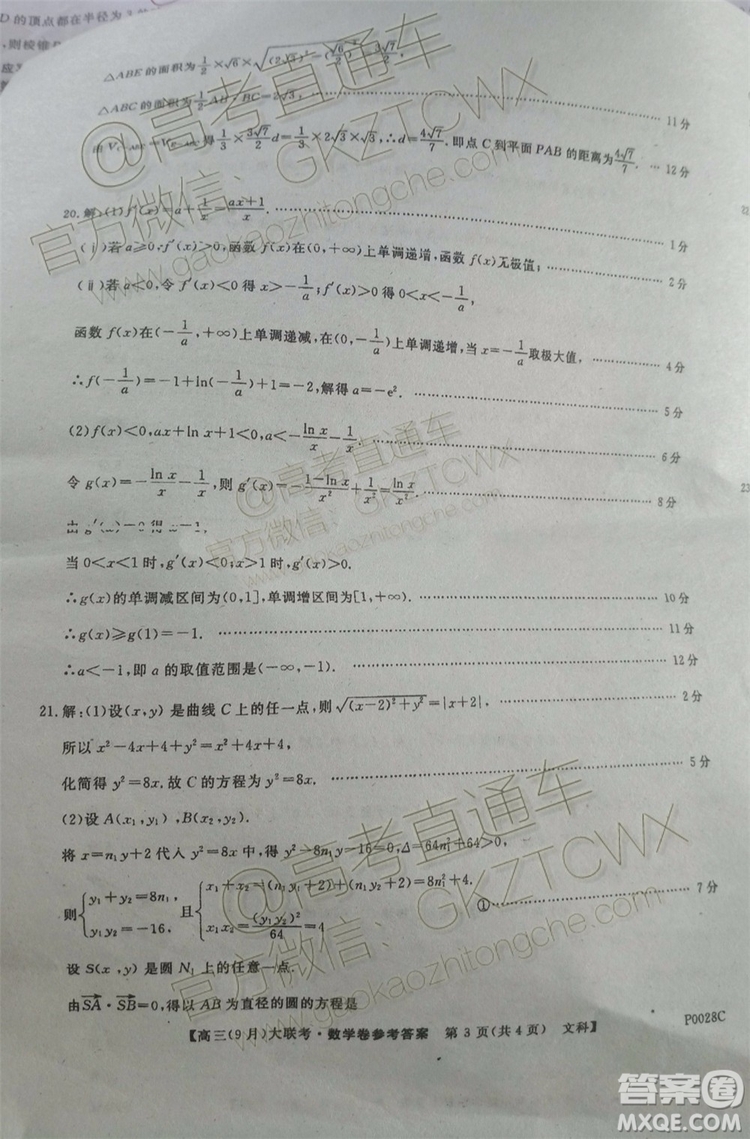 D 的顶点都在半径为 3
,则棱锥
△ABE 的面积为1/2×√6×√((2√3)²-(√6/2)²)=3√7/2,
△ABC 的面积为1/2AB·BC=2√3, 11分
得1/3×3√7/2 d=1/3×2√3×√3,∴d=4√7/7. 即点 C 到平面 PAB 的距离为4√7/7. 12分
20. 解:(1)f′(x)=a+1/x=(ax+1)/x. 1分
(ⅰ)若 a≥0,f′(x)>0,函数 f(x)在(0,+∞)上单调递增,函数 f(x)无极值; 2分
(ⅱ)若 a<0,令 f′(x)<0 得 x>-1/a;f′(x)>0 得 0<x<-1/a,
函数 f(x)在(-1/a,+∞)上单调递减,在(0,-1/a)上单调递增,当 x=-1/a取极大值, 4分
∴f(-1/a)=-1+ln(-1/a)+1=-2,解得 a=-e². 5分
(2)f(x)<0,ax+ln x+1<0,a<-ln x/x-1/x. 6分
令 g(x)=-ln x/x-1/x,则 g′(x)=-(1-ln x)/x²+1/x²=ln x/x². 8分
由 g′(x)=0 得 x=1.
当 0<x<1 时,g′(x)<0;当 x>1 时,g′(x)>0.
∴g(x)的单调减区间为(0,1],单调增区间为[1,+∞). 10分
∴g(x)≥g(1)=-1. 11分
∴a<-1,即 a 的取值范围是(-∞,-1). 12分
21. 解:(1)设(x,y) 是曲线 C 上的任一点,则√((x-2)²+y²)=|x+2|, 2分
所以 x²-4x+4+y²=x²+4x+4,
化简得 y²=8x. 故 C 的方程为 y²=8x. 5分
(2)设 A(x₁,y₁),B(x₂,y₂).
将 x=n₁y+2 代入 y²=8x 中,得 y²-8n₁y-16=0,Δ=64n₁²+64>0,
则{y₁+y₂=8n₁, y₁y₂=-16, 且{x₁+x₂=(n₁y₁+2)+(n₁y₂+2)=8n₁²+4, x₁x₂=(y₁y₂)²/64=4 ① 7分
设 S(x,y) 是圆 N₁ 上的任意一点.
由SA·SB=0,得以 AB 为直径的圆的方程是
【高三(9月)大联考·数学卷参考答案 第 3 页(共 4 页) 文科】
P0028C
@高考直通车
官方微信:GKZTCWX
www.gaokaozhitongche.com
@高考直通车
官方微信:GKZTCWX
www.gaokaozhitongche.com
@高考直通车
官方微信:GKZTCWX
www.gaokaozhitongche.com
答案圈
MXQE.COM